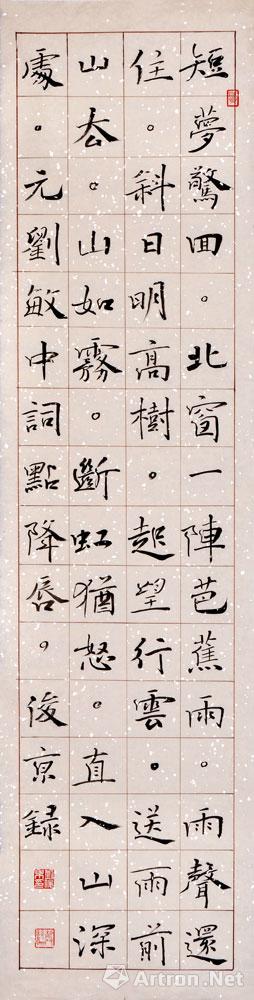 短夢驚回。北窗一陣芭蕉雨。雨聲還
住。斜日明高樹。起望行雲。送雨前
山去。山如霧。斷虹猶怒。直入山深
處。元劉敏中詞點降唇。俊京録
Artron.Net